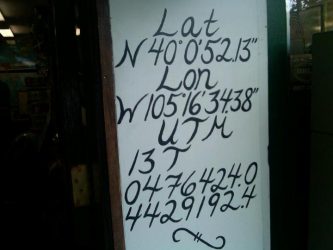 Lat
N 40°0'52.13"
Lon
W105°16'34.38"
UTM
13 T
0476424.0
4429192.4